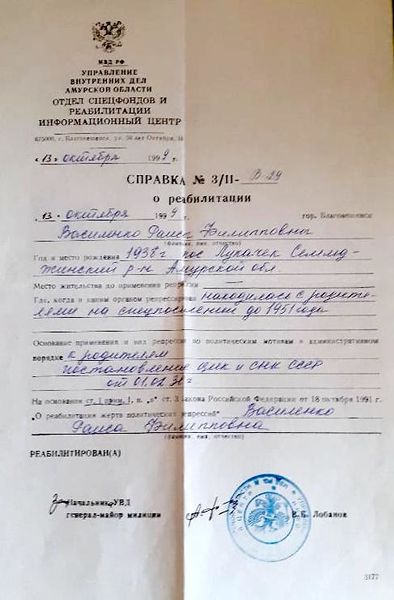 МВД РФ
УПРАВЛЕНИЕ
ВНУТРЕННИХ ДЕЛ
АМУРСКОЙ ОБЛАСТИ
ОТДЕЛ СПЕЦФОНДОВ И
РЕАБИЛИТАЦИИ
ИНФОРМАЦИОННЫЙ ЦЕНТР
675000, г. Благовещенск, ул. 50 лет Октября, 18
«13» октября 1994 г.
СПРАВКА № 3/П- В-29
о реабилитации
«13» октября 1994 г. гор. Благовещенск
Василенко Раиса Филипповны
(фамилия, имя, отчество)
Год и место рождения 1938 г пос Лукачек Селемд-
жинский р-н Амурской обл.
Место жительства до применения репрессии
Где, когда и каким органом репрессирован находилась с родите-
лями на спецпоселении до 1951 года
Основание применения и вид репрессии по политическим мотивам в административном
порядке к родителям
постановление ЦИК и СНК СССР
от 01.02.30 г
На основании ст. 1 прим. 1, п. «в» ст. 3 Закона Российской Федерации от 18 октября 1991 г.
«О реабилитации жертв политических репрессий» Василенко
Раиса Филипповна
(фамилия, имя, отчество)
РЕАБИЛИТИРОВАН(А)
Начальник УВД
генерал-майор милиции В.Б. Лобанов
3177